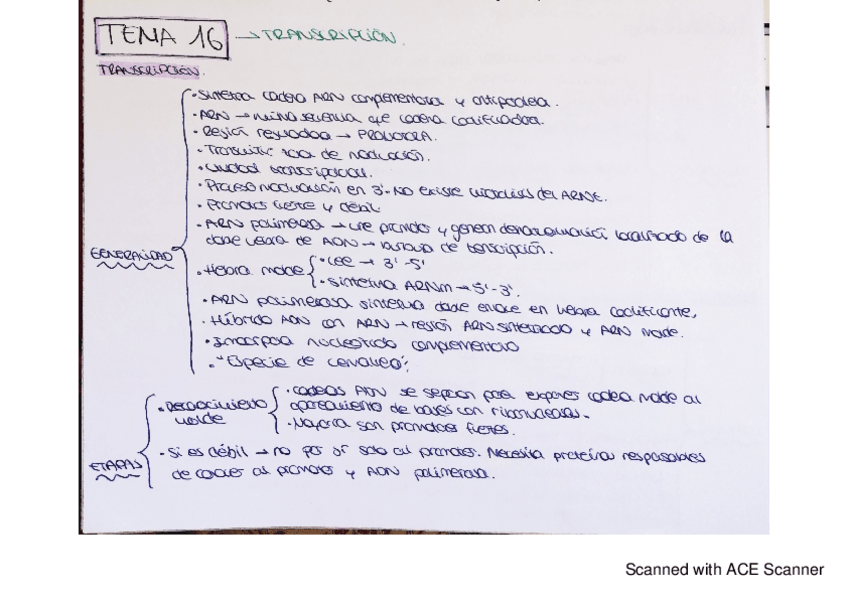 TEMA 16 → TRANSCRIPCIÓN.
TRANSCRIPCIÓN.
· Sintetiza cadena ARN complementaria y antiparalela.
· ARN → misma secuencia que cadena codificadora.
· Región reguladora → PROMOTORA.
· Transcrito: de
· Unidad transcripcional.
· Proceso en 3'. No existe del
· Promotor fuerte y débil
· ARN polimerasa → une promotor y genera desnaturalización localizada de la
doble hebra de ADN → burbuja de transcripción.
GENERALIDAD
· Hebra molde
· Lee → 3'-5'
· Sintetiza ARNm → 5'-3'.
· ARN polimerasa sintetiza doble enlace en hebra codificante,
· Híbrido ADN con ARN → región ARN sintetizado y ARN molde.
· Incorpora nucleótido complementario
· "Especie de
ETAPAS
· Reconocimiento
molde
· Cadenas ADN se separan para exponer cadena molde al
apareamiento de bases con
· Mayoría son promotores fuertes.
· Si es débil → no por sí solo al promotor. Necesita proteína responsables
de al promotor y ADN polimerasa.
Scanned with ACE Scanner